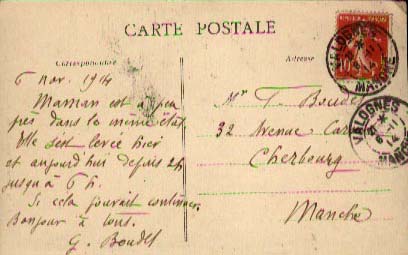 CARTE POSTALE
Correspondance
Adresse
6 nov. 1914
Maman est à peu
près dans le même état.
Elle s'est levée hier
et aujourd'hui depuis 2h
jusqu'à 6 h.
Si cela pouvait continuer.
Bonjour à tout.
G. Boudet
Mr T. Boudet
32 Avenue Car
Cherbourg
Manche
VALOGNES
MANCHE
VALOGNES
MANCHE